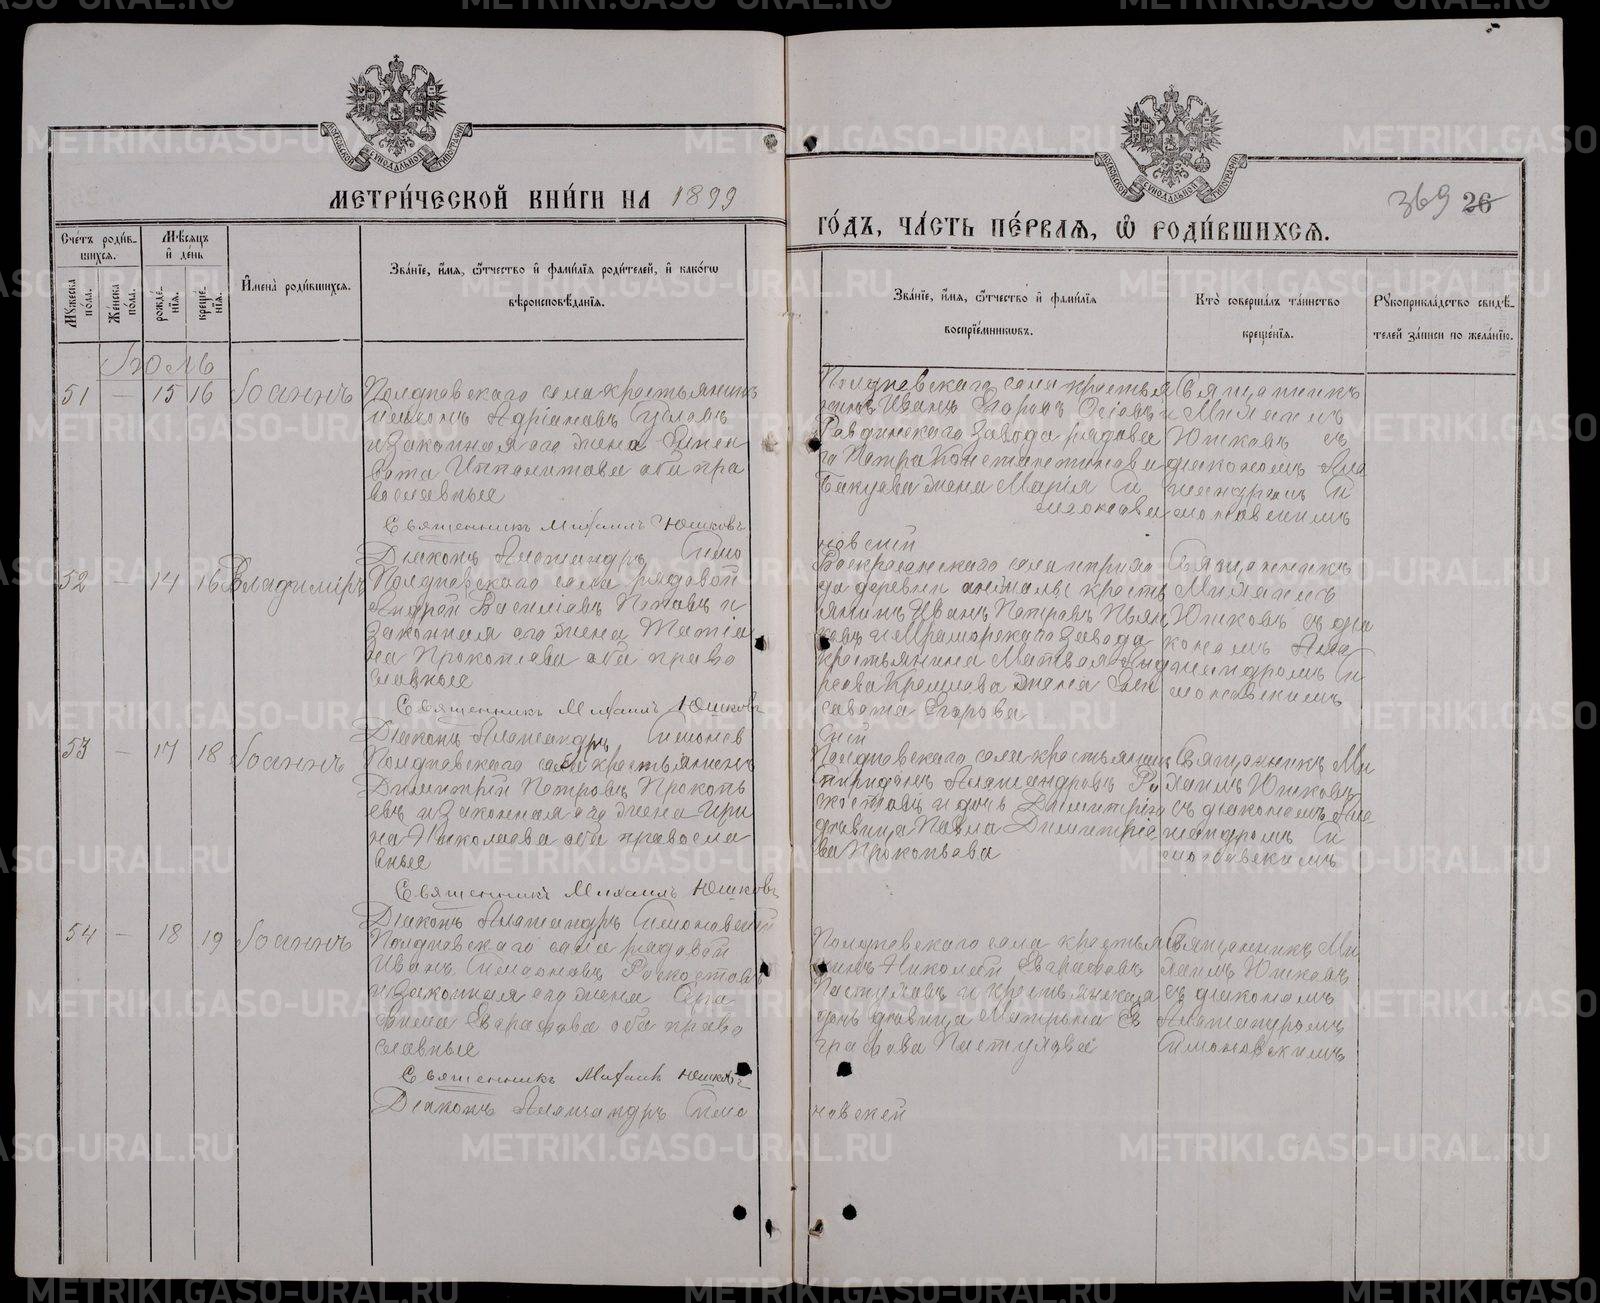 МЕТРИ́ЧЕСКОЙ КНИ́ГИ НА 1899
ГО́ДЪ, ЧА́СТЬ ПЕ́РВАЯ, Ѡ҆ РОДИ́ВШИХСЯ.
369 26
Сче́тъ роди́в-
шихся.
Мѣ́сяцъ
и҆ де́нь
Му́жеска по́ла.
Же́нска по́ла.
рожде́-
нїя.
креще́-
нїя.
И҆мена̀ роди́вшихся.
Зва́нїе, и҆́мя, ѻ҆́тчество и҆ фами́лїя роди́телей, и҆ како́гѡ
вѣроисповѣ́данїя.
Зва́нїе, и҆́мя, ѻ҆́тчество и҆ фами́лїя
воспрїе́мникѡвъ.
Кто̀ соверша́лъ та́инство
креще́нїя.
Рꙋкоприкла́дство свидѣ́-
телей за́писи по жела́нїю.
Іюль
51 — 15 16 Іоаннъ
Полдневскаго села крестьянинъ
Адріановъ
и законная его жена
Ипполитова оба пра
вославные
Священникъ Михаилъ Юшковъ
Діаконъ Александръ Симо
новский
Полдневскаго села крестья
нинъ Иванъ Егоровъ
завода рядова
го Петра Константинова
жена Марія
Священникъ
Михаилъ
Юшковъ съ
діакономъ Але
ксандромъ Си
моновскимъ
52 — 14 16 Владиміръ
Полдневскаго села рядовой
Андрей Василіевъ и
законная его жена Татіа
на Прокопіева оба право
славные
Священникъ Михаилъ Юшковъ
Діаконъ Александръ Симонов
скій
села прихо
да деревни кресть
янинъ Иванъ Петровъ
ковъ и Мраморскаго завода
крестьянина Матвея
жена Ели
савета Егорова
Священникъ
Михаилъ
Юшковъ съ діа
кономъ Але
ксандромъ Си
моновскимъ
53 — 17 18 Іоаннъ
Полдневскаго села крестьянинъ
Димитрій Петровъ Прокопь
евъ и законная его жена Ири
на Николаева оба правосла
вные
Священникъ Михаилъ Юшковъ
Діаконъ Александръ Симоновскій
Полдневскаго села крестьянинъ
Спиридонъ Александровъ
и дочь Димитрія
девица Павла Димитріе
ва Прокопьева
Священникъ Ми
хаилъ Юшковъ
съ діакономъ Але
ксандромъ Си
моновскимъ
54 — 18 19 Іоаннъ
Полдневскаго села рядовой
Иванъ Симеоновъ
и законная его жена Сера
фима Евграфова оба право
славные
Священникъ Михаилъ Юшковъ
Діаконъ Александръ Симо
новскій
Полдневскаго села крестья
нинъ Николай Евграфовъ
Пастуховъ и крестьянская
дочь девица Матрона Ев
графова Пастухова
Священникъ Ми
хаилъ Юшковъ
съ діакономъ
Александромъ
Симоновскимъ
METRIKI.GASO-URAL.RU